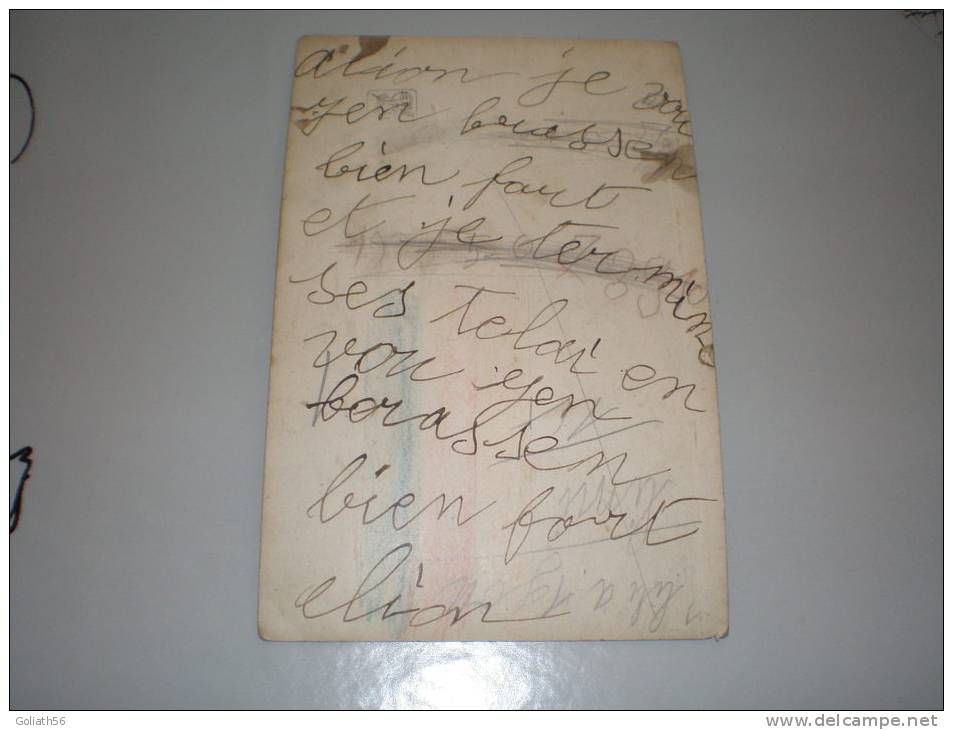 alion je vou
yen brassen
bien fort
et je termine
ses telai en
vou yen
borassen
bien fort
elion
Goliath56
www.delcampe.net